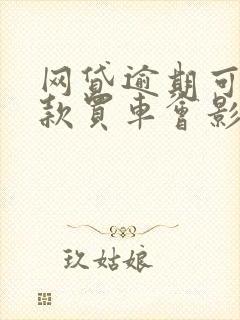 网贷逾期可
款買車會影
玖姑娘